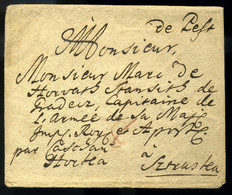 de Pest
Monsieur,
Monsieur Marc de
Horvath Stansith de
Gradec, Capitaine de
L'Armée de Sa Maj:
Imp: Roy: et Apost:
par Caschau
à